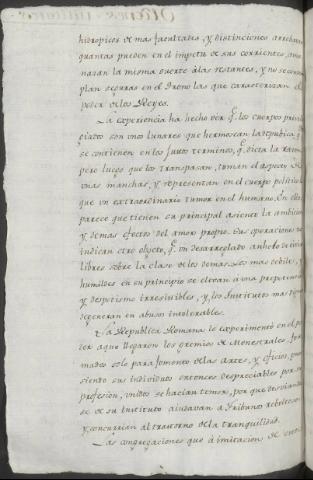 hidropicos de mas facultades, y distinciones arrebatan
quantas pueden en el impetu de sus corrientes, ame-
nazan la misma suerte à las restantes, y no se contem-
plan seguras en el Trono las que caracterizan el
poder de los Reyes.
La experiencia ha hecho ver q.e los cuerpos privile-
giados son unos lunares que hermosean la republica, q.do
se contienen en los justos terminos, q.e dicta la razon
pero luego que los transpasan, toman el aspecto de
unas manchas, y representan en el cuerpo politico lo
que un extraordinario tumor en el humano. En ellos
parece que tienen su principal asiento la ambicion
y demas efectos del amor propio. Sus operaciones no
indican otro objeto, q.e un desarreglado anhelo de vivir
libres sobre la clase de los demas. Los mas debiles, y
humildes en su principio se elevan à una prepotencia
y despotismo irresistibles, y los Institutos mas
degeneran en abusos intolerables.
La Republica Romana lo experimentó en el po-
der a que llegaron los gremios de Menestrales. For-
mados solo para fomento de las Artes, y oficios,
siendo sus individuos entonces despreciables por su
profesion, unidos se hacian temer, por que desviando-
se de su Instituto aiudavan à Tribunos
y concurrian al trastorno de la tranquilidad.
Las congregaciones que à imitacion de